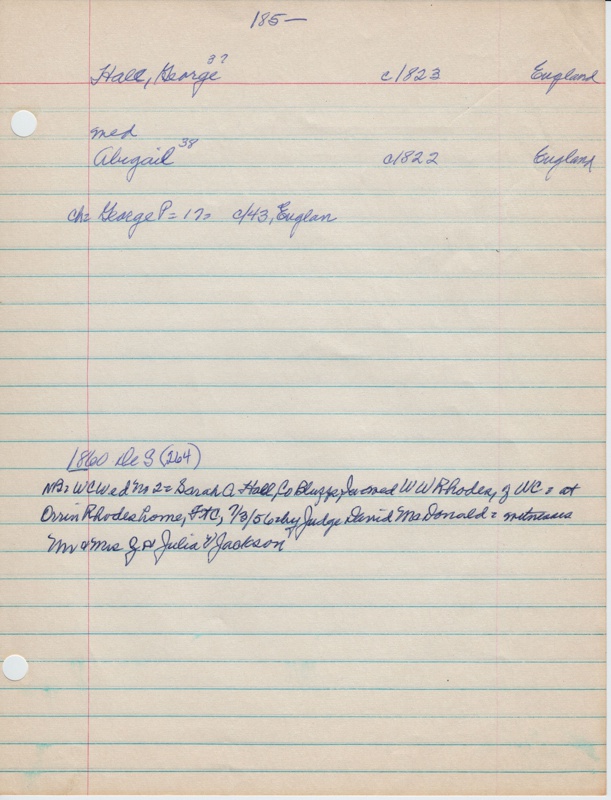 185—
Hall, George 37 c/1823 England
med
Abigail 38 c/1822 England
ch= George P= 17= c/43, Englan
1860 DeS (264)
NB= WC Wed'm 2= Sarah A. Hall, Co Bluffs, Ia wed W W Rhodes, of WC = at
Orrin Rhodes home, FtC, 7/3/56 = by Judge David McDonald = witnesses
Mr & Mrs J H Julia V Jackson